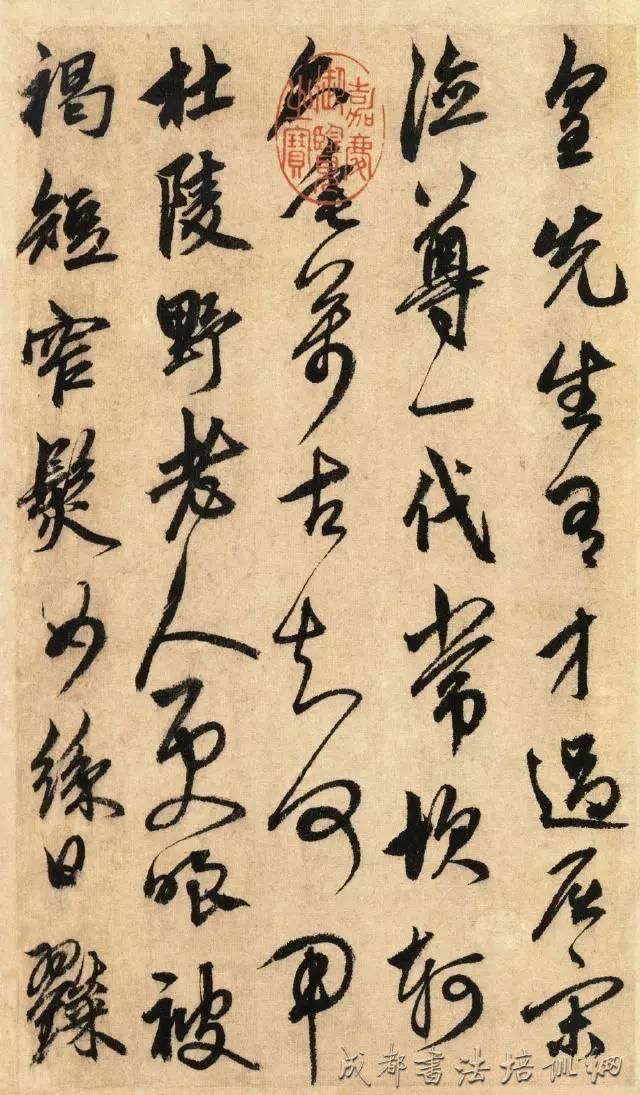 皇先生有才過屈宋
德尊一代常坎軻
名垂萬古知何用
杜陵野老人更嗤被
褐短窄鬢如絲日糴
嘉慶御覽之寶
成都書法培训網